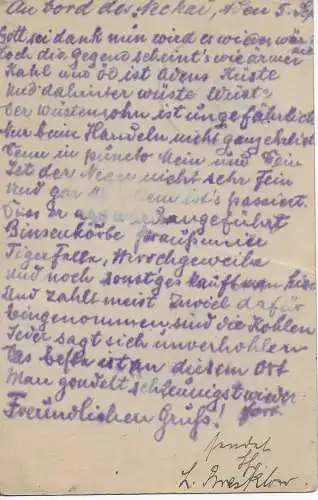 An Bord der Neckar, Aden 5. Sep
Gott sei dank nun wird es wieder wärmer
Doch die Gegend scheint's wie ärmer
Kahl und öd ist Adens Küste
Und dahinter wüste Wüste
Der Wüstensohn ist ungefährlich
Nur beim Handeln nicht ganz ehrlich
Denn in puncto Mein und Dein
Ist der Neger nicht sehr fein
Und gar ist's passiert.
Dass er arg angeführt
Binsenkörbe Straußeneier
Tigerfelle, Hirschgeweihe
Und noch sonstiges kauft man hier
Und zahlt meist Zuviel dafür
Eingenommen sind die Kohlen
Jeder sagt sich unverhohlen
Das beste ist an diesem Ort
Man gondelt schleunigst wieder fort.
Freundlichen Gruss!
sendet
L.